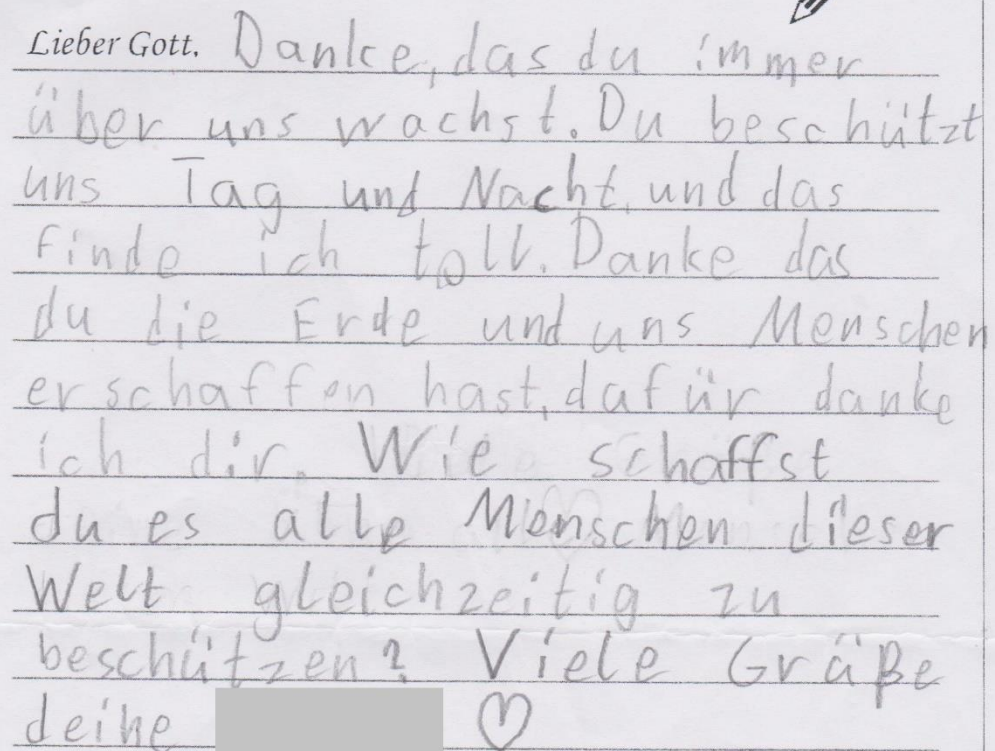 Lieber Gott. Danke, das du immer
über uns wachst. Du beschützt
uns Tag und Nacht, und das
finde ich toll. Danke das
du die Erde und uns Menschen
erschaffen hast, dafür danke
ich dir. Wie schaffst
du es alle Menschen dieser
Welt gleichzeitig zu
beschützen? Viele Grüße
deine ♡